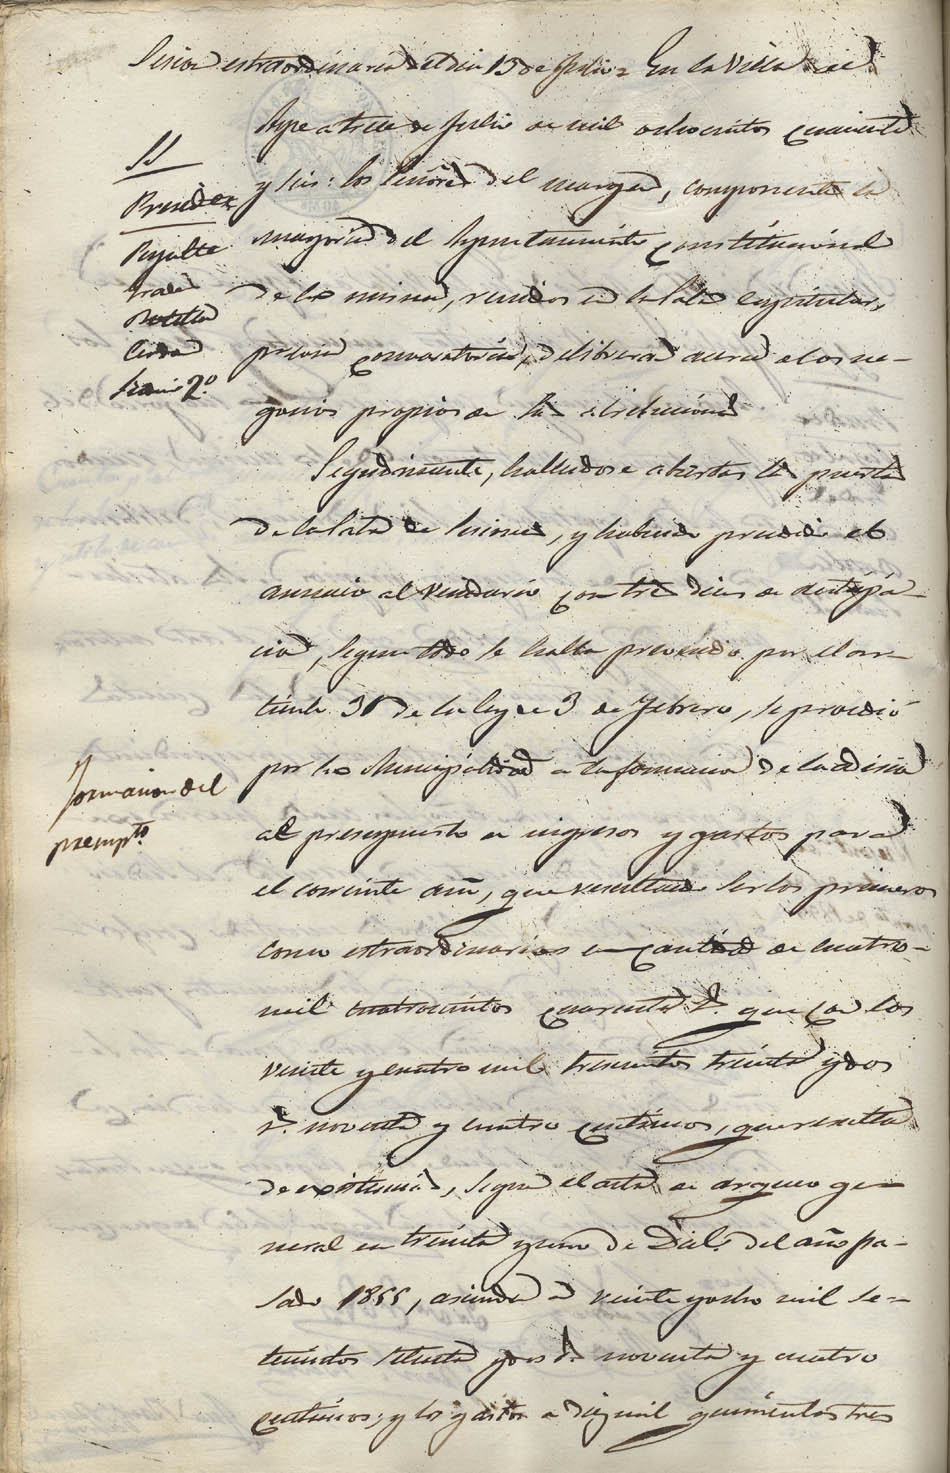 Sesion estraordinaria del dia 13 de Julio = En la Villa de
Aspe a trece de Julio de mil ochocientos cincuenta
y seis: los Señores del margen, componente la
mayoria del Ayuntamiento constitucional
de la misma, reunidos en la Sala capitular,
previa convocatoria, deliberar acerca a los ne-
gocios propios de su atribucion
SS
Preside
Botella
Cerda
2º
Seguidamente, hallandose abiertas las puertas
de la Sala de Sesiones, y habiendo precedido el
anuncio al vecindario con tres dias de anticipa-
cion, segun todo se halla prevenido por el ar-
ticulo de la ley de 3 de Febrero, se procedió
por la Municipalidad a la formacion de la adision
al presupuesto de ingresos y gastos para
el corriente año, que resultando ser los primeros
como estraordinarios en cantidad de cuatro-
mil cuatrocientos cuarenta rs. que con los
veinte y cuatro mil trescientos treinta y dos
rs. noventa y cuatro centimos, que resulta
de existencia, segun el acta de arqueo ge-
neral en treinta y uno de Dice. del año pa-
sado 1855, asciende a veinte y ocho mil se-
tecientos setenta y dos rs. noventa y cuatro
centimos; y los gastos a diez mil quinientos tres
formacion del
presupto.